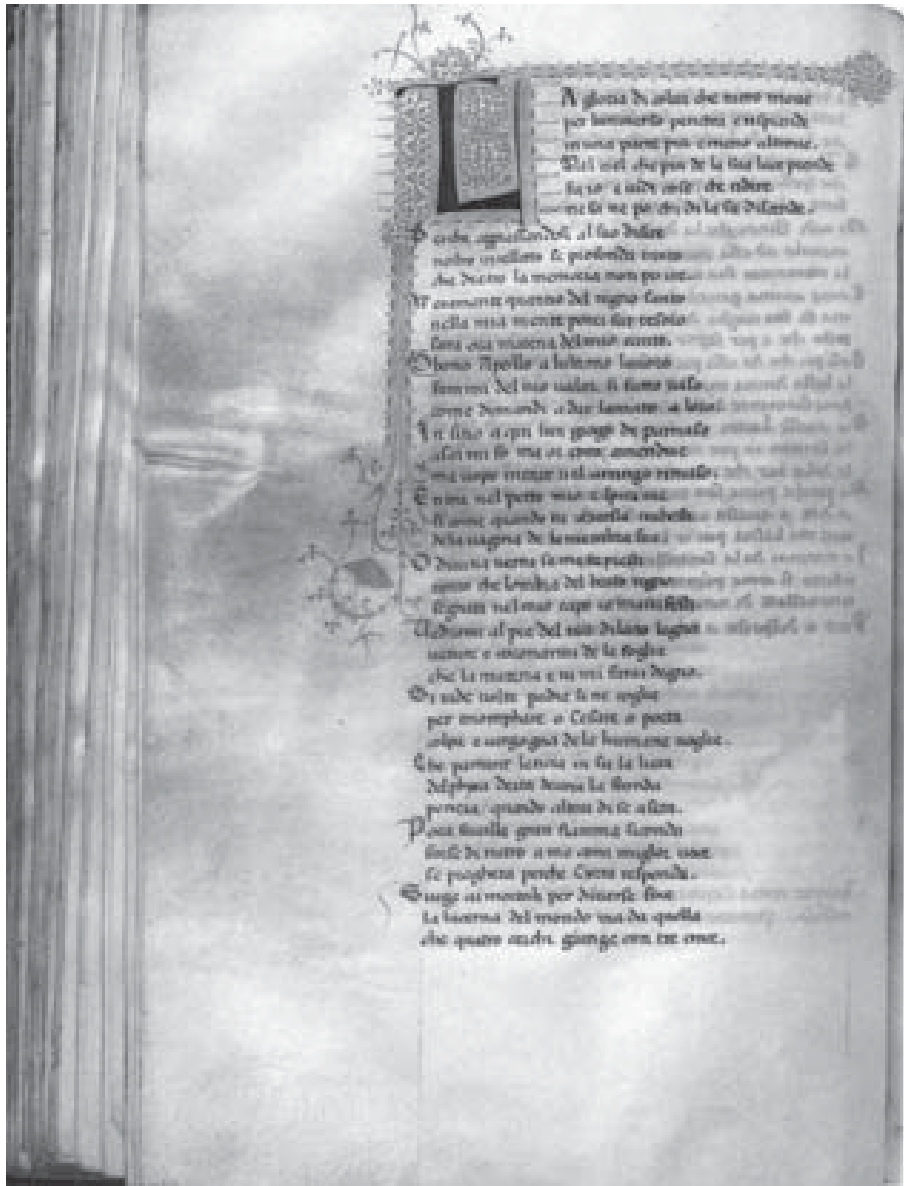 LA gloria di colui che tutto moue
per luniuerso penetra e risplende
in una parte piu e meno altroue.
Nel ciel che piu de la sua luce prende
fu io e uidi cose che ridire
ne sa ne po chi di la su discende.
Perche appressandosi al suo disire
nostro intelletto si profonda tanto
che dietro la memoria non po ire.
Veramente quanto del regno santo
nella mia mente potei far tesoro
sara ora materia del mio canto.
O bono Apollo a lultimo lauoro
fammi del tuo ualor si fatto uaso
come dimandi a dar lamato alloro
In fino a qui lun giogo di parnaso
assai mi fo ma or con amendue
ma uopo intrar nel aringo rimaso
Entra nel petto mio e spira tue
si come quando tu marsia trahesti
de la uagina de le membra sue
O diuina uertu se mi ti presti
tanto che lombra del beato regno
segnata nel mio capo io manifesti
Uedrami al pie del tuo diletto legno
uenire e coronarmi de le foglie
che la materia e tu mi farai degno.
Si rade uolte padre se ne coglie
per triomphare o Cesare o poeta
colpa e uergogna de le humane uoglie.
Che parturir letitia in su la lieta
delphica deita deuria la fronda
peneia quando alcun di se asseta.
Poca fauilla gran fiamma seconda
forse di retro a me con miglior uoce
se preghera perche Cirra risponda.
Surge ai mortali per diuerse foce
la lucerna del mondo ma da quella
che quatro cerchi giunge con tre croce.